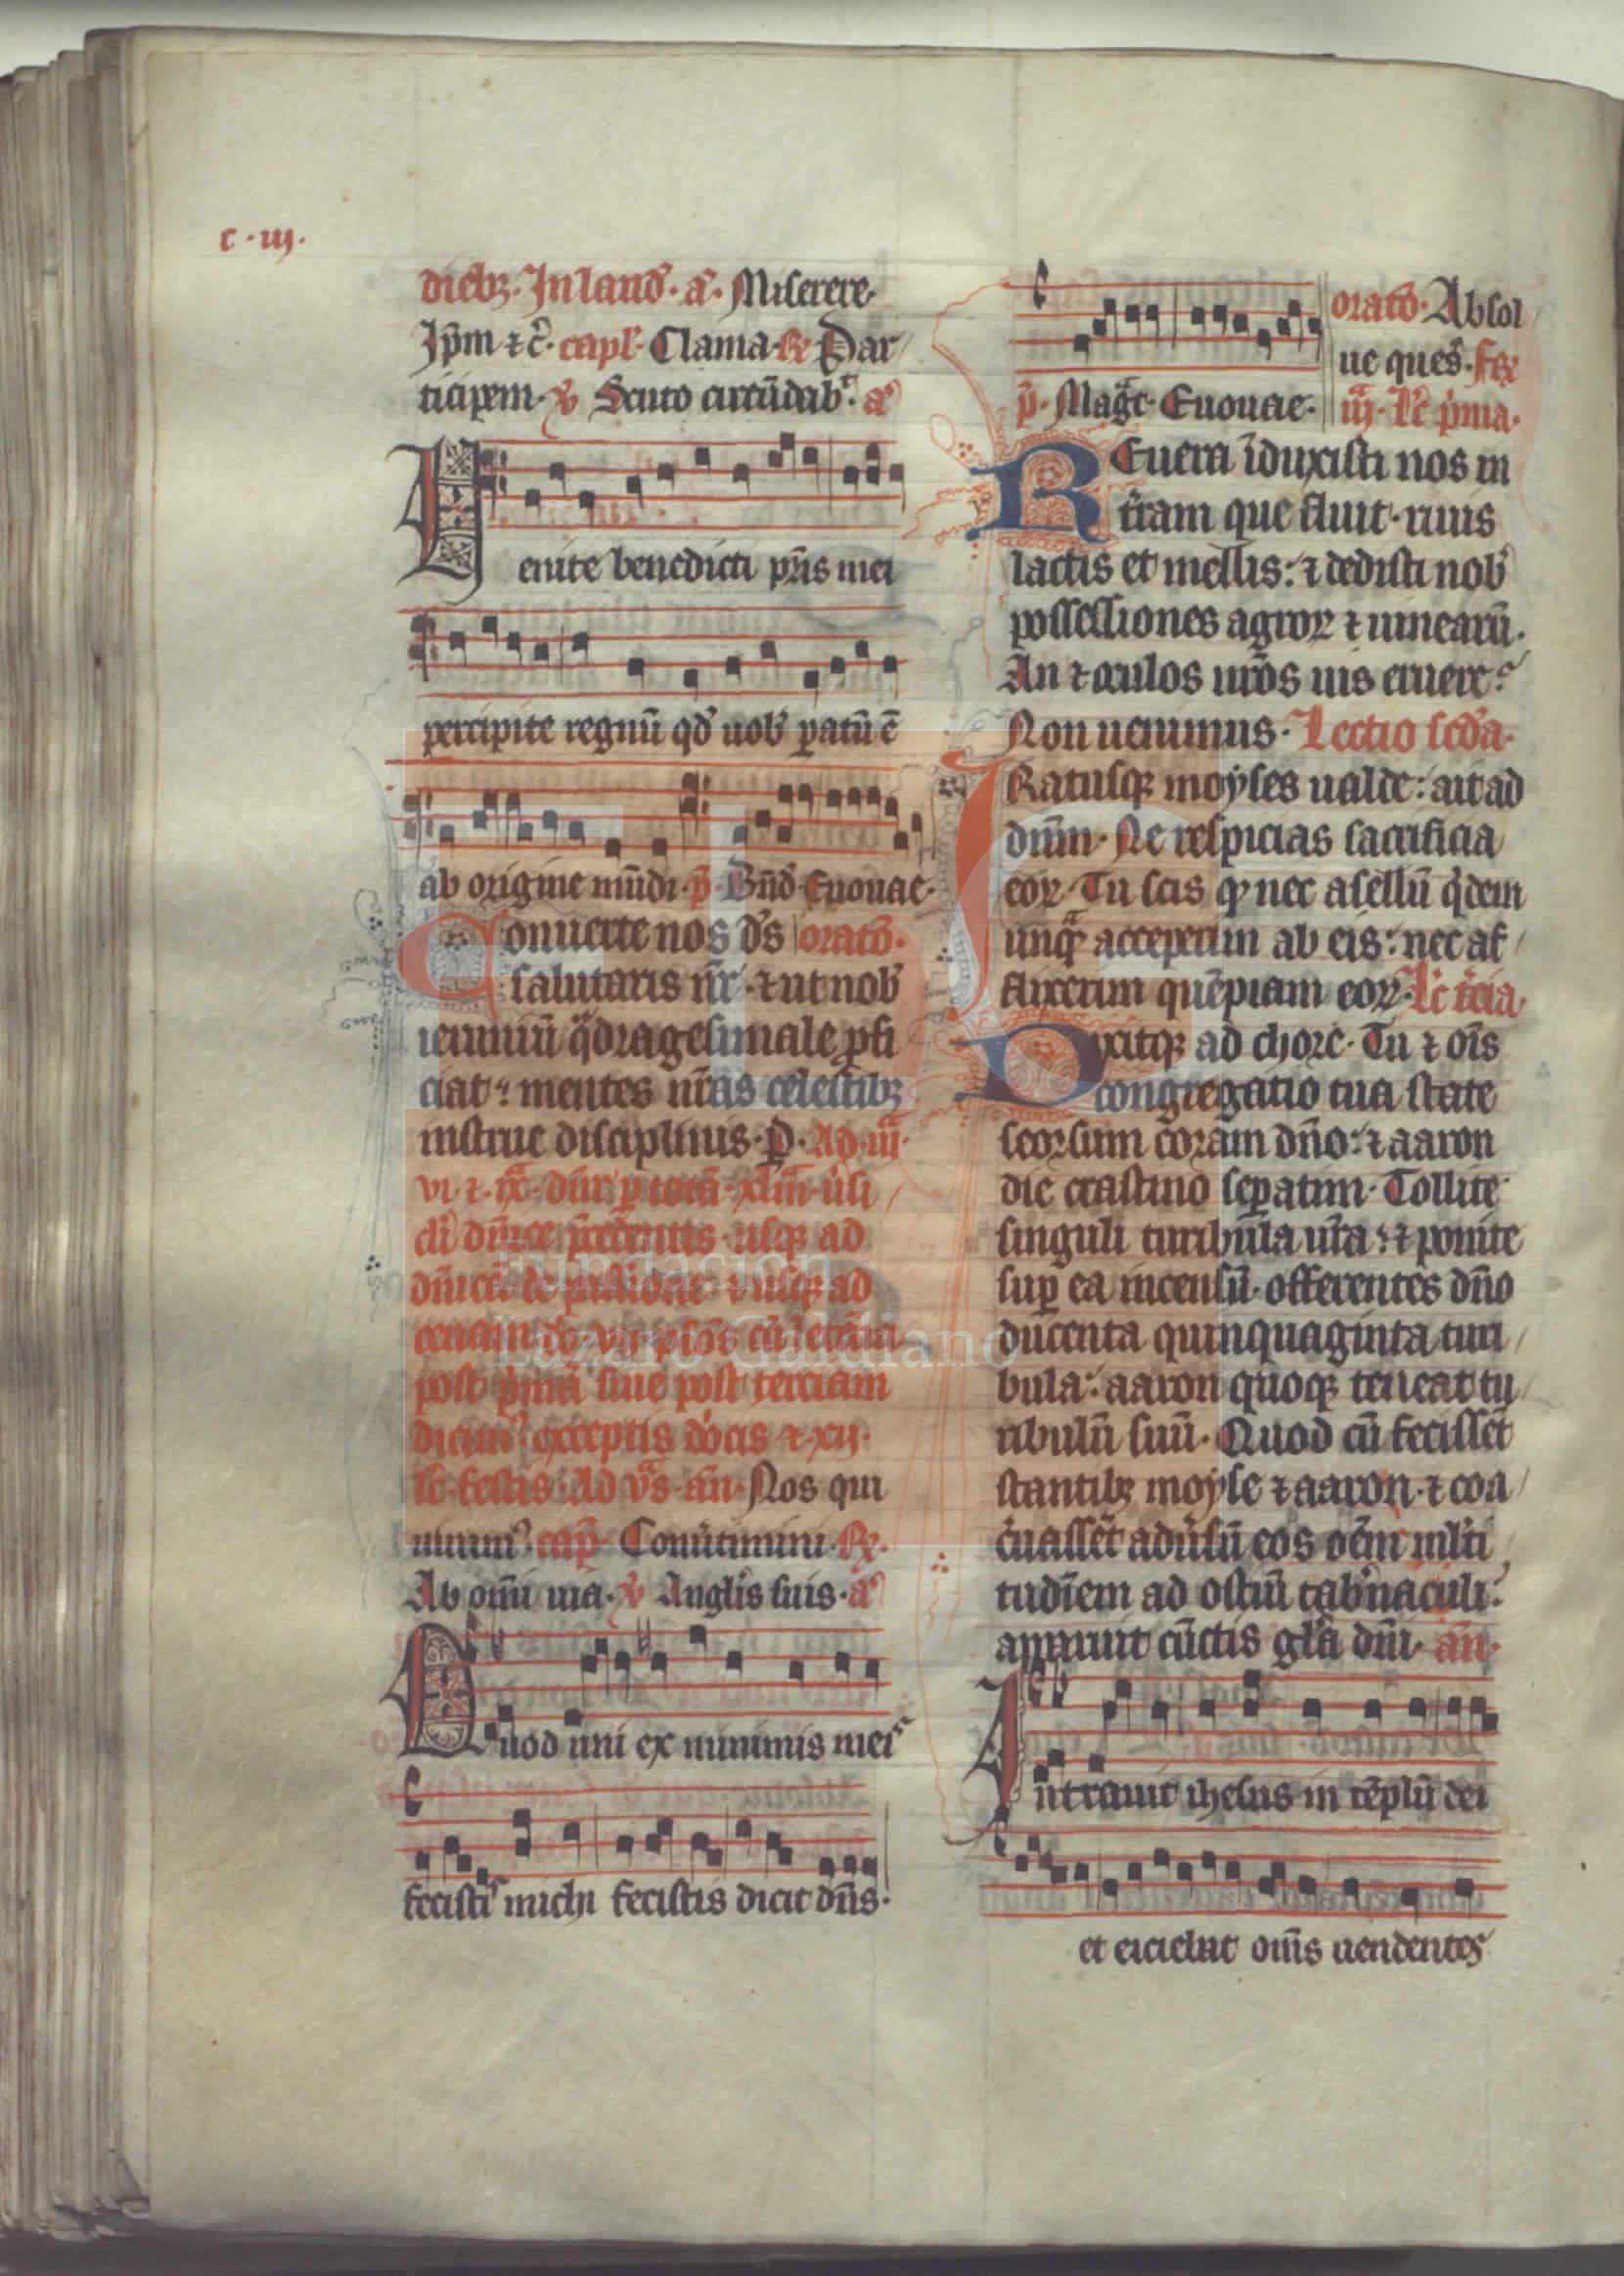 c · iij ·
dieb⁊. In laud̉. a̾. Miserere.
Ip̄m ⁊ c̾. capl̾. Clama. ℞ Par
ticipem. ℣ Scuto circūdab̾. a̾
enite benedicti pr̄is mei
percipite regnū qd̾ uob̾ paratū ē
ab origine mūdi. p̄. Bn̄d̾. Euouae.
Conuerte nos d̄s orat̄o.
salutaris nr̄. ⁊ ut nob̾
ieiuniū q̈dragesimale ꝓfi
ciat: mentes nr̄as celestib⁊
instrue disciplinis. P̱. Ad iij̾.
vi ⁊ ix̾. dn̄r p̱ totā xlm̄ usi
post p̾mā siue post terciam
dicunt̾. exceptis d̾icis ⁊ xij.
lc̄. festis. Ad v̄s. an̄. Nos qui
uiuim̾. cap̄. Conu̾timini. ℞.
Ab om̄i uia. ℣ Angl̾is suis. a̾
Quod uni ex minimis meis
fecist̾ michi fecistis dicit dn̄s.
orat̄o. Absol
ue ques̾. Fer̾
p̄. Mag̾c. Euouae. iij̾. Lc̄ p̾ma.
REuera īduxisti nos in
t̾ram que fluit riuis
lactis et mellis: ⁊ dedisti nob̾
possessiones agroꝝ ⁊ uinearū.
An ⁊ oculos nr̄os uis eruere?
Non uenimus. Lectio sc̄da.
IRatusqꝫ moyses ualde: ait ad
dn̄m. Ne respicias sacrificia
eoꝝ. Tu scis qꝫ nec asellū q̾dem
unqꝫ acceperim ab eis: nec af
flixerim quēpiam eoꝝ. Lc̄ t̾cia.
Dixitqꝫ ad chore. Tu ⁊ om̄s
congregatio tua state
seorsum coram dn̄o: ⁊ aaron
die crastino sep̱atim. Tollite
singuli turibula ur̄a: ⁊ ponite
sup̱ ea incensū. offerentes dn̄o
ducenta quinquaginta turi
bula: aaron quoqꝫ teneat tu
ribulū suū. Quod cū fecissēt
stantib⁊ moyse ⁊ aaron. ⁊ coa
c̾uassēt adu̾sū eos oēm ml̾ti
tudīem ad ostiū tab̾naculi:
apparuit cūctis gl̄a dn̄i. an̄.
Intrauit ihesus in tēplū dei
et eiciebat om̄s uendentes
Fundación
Lázaro Galdiano